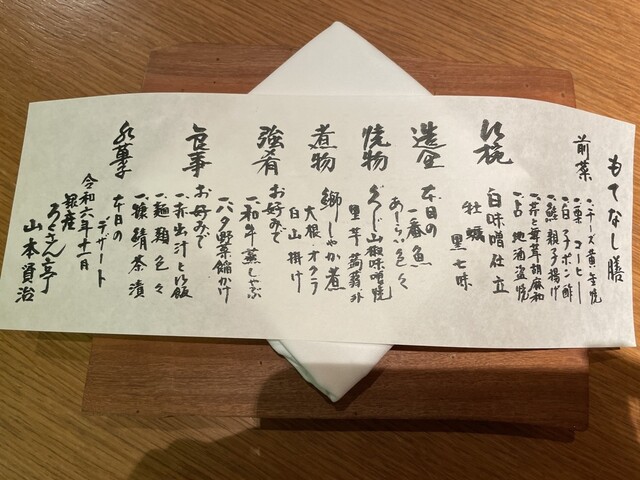 もてなし膳
前菜
一、チーズ黄金焼
一、栗 コーヒー
一、白子ポン酢
一、鯨親子揚げ
一、芹と舞茸胡麻和
一、占地酒盗焼
白味噌仕立
牡蠣 黒七味
造里
本日の一番魚
あしらい色々
焼物
ぐじ山椒味噌焼
里芋 蒟蒻 外
煮物
鰤しゃか煮
大根・オクラ
白山掛け
強肴
お好みで
一、和牛蒸しゃぶ
一、八夕野菜餡かけ
食事
お好みで
一、赤出汁と御飯
一、麺類色々
一、糠鯖茶漬
水菓
本日の
デザート
令和六年十一月
銀座 ろくさん亭
山本晋治